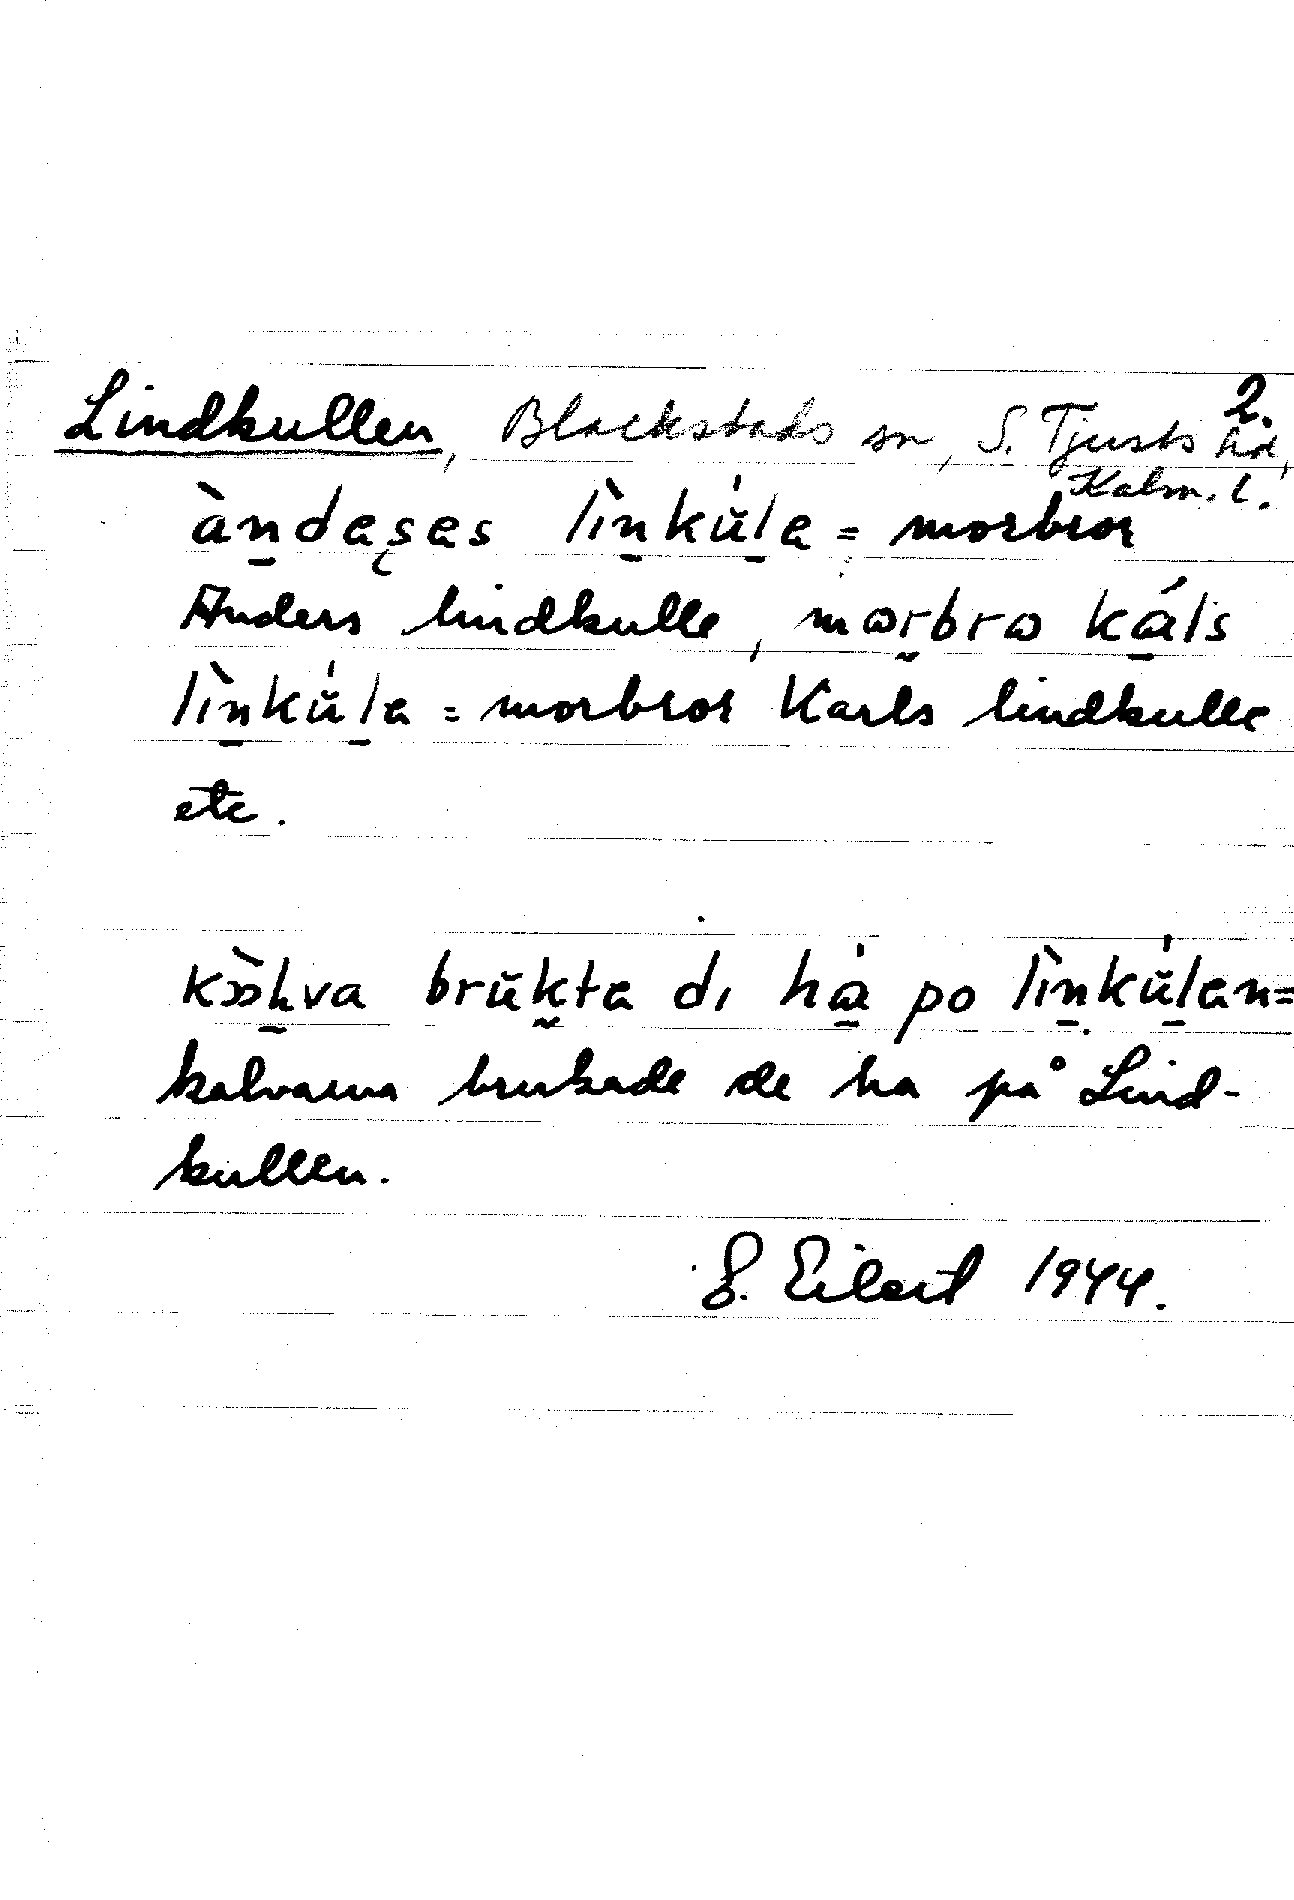 2.
Lindkullen, Blackstads sn, S. Tjusts hd,
Kalm. l.
àn̠daşas lìn̠kŭ́l̠a = morbror
Anders lindkulle, mɷr̰brɷ ká̠ls
lìn̠kŭ́l̠a = morbror Karls lindkulle
etc.
brŭk̰ta di há̠ po lìn̠kŭ́l̠an=
kalvarna brukade de ha på Lind-
kullen.
G. Eilert 1944.